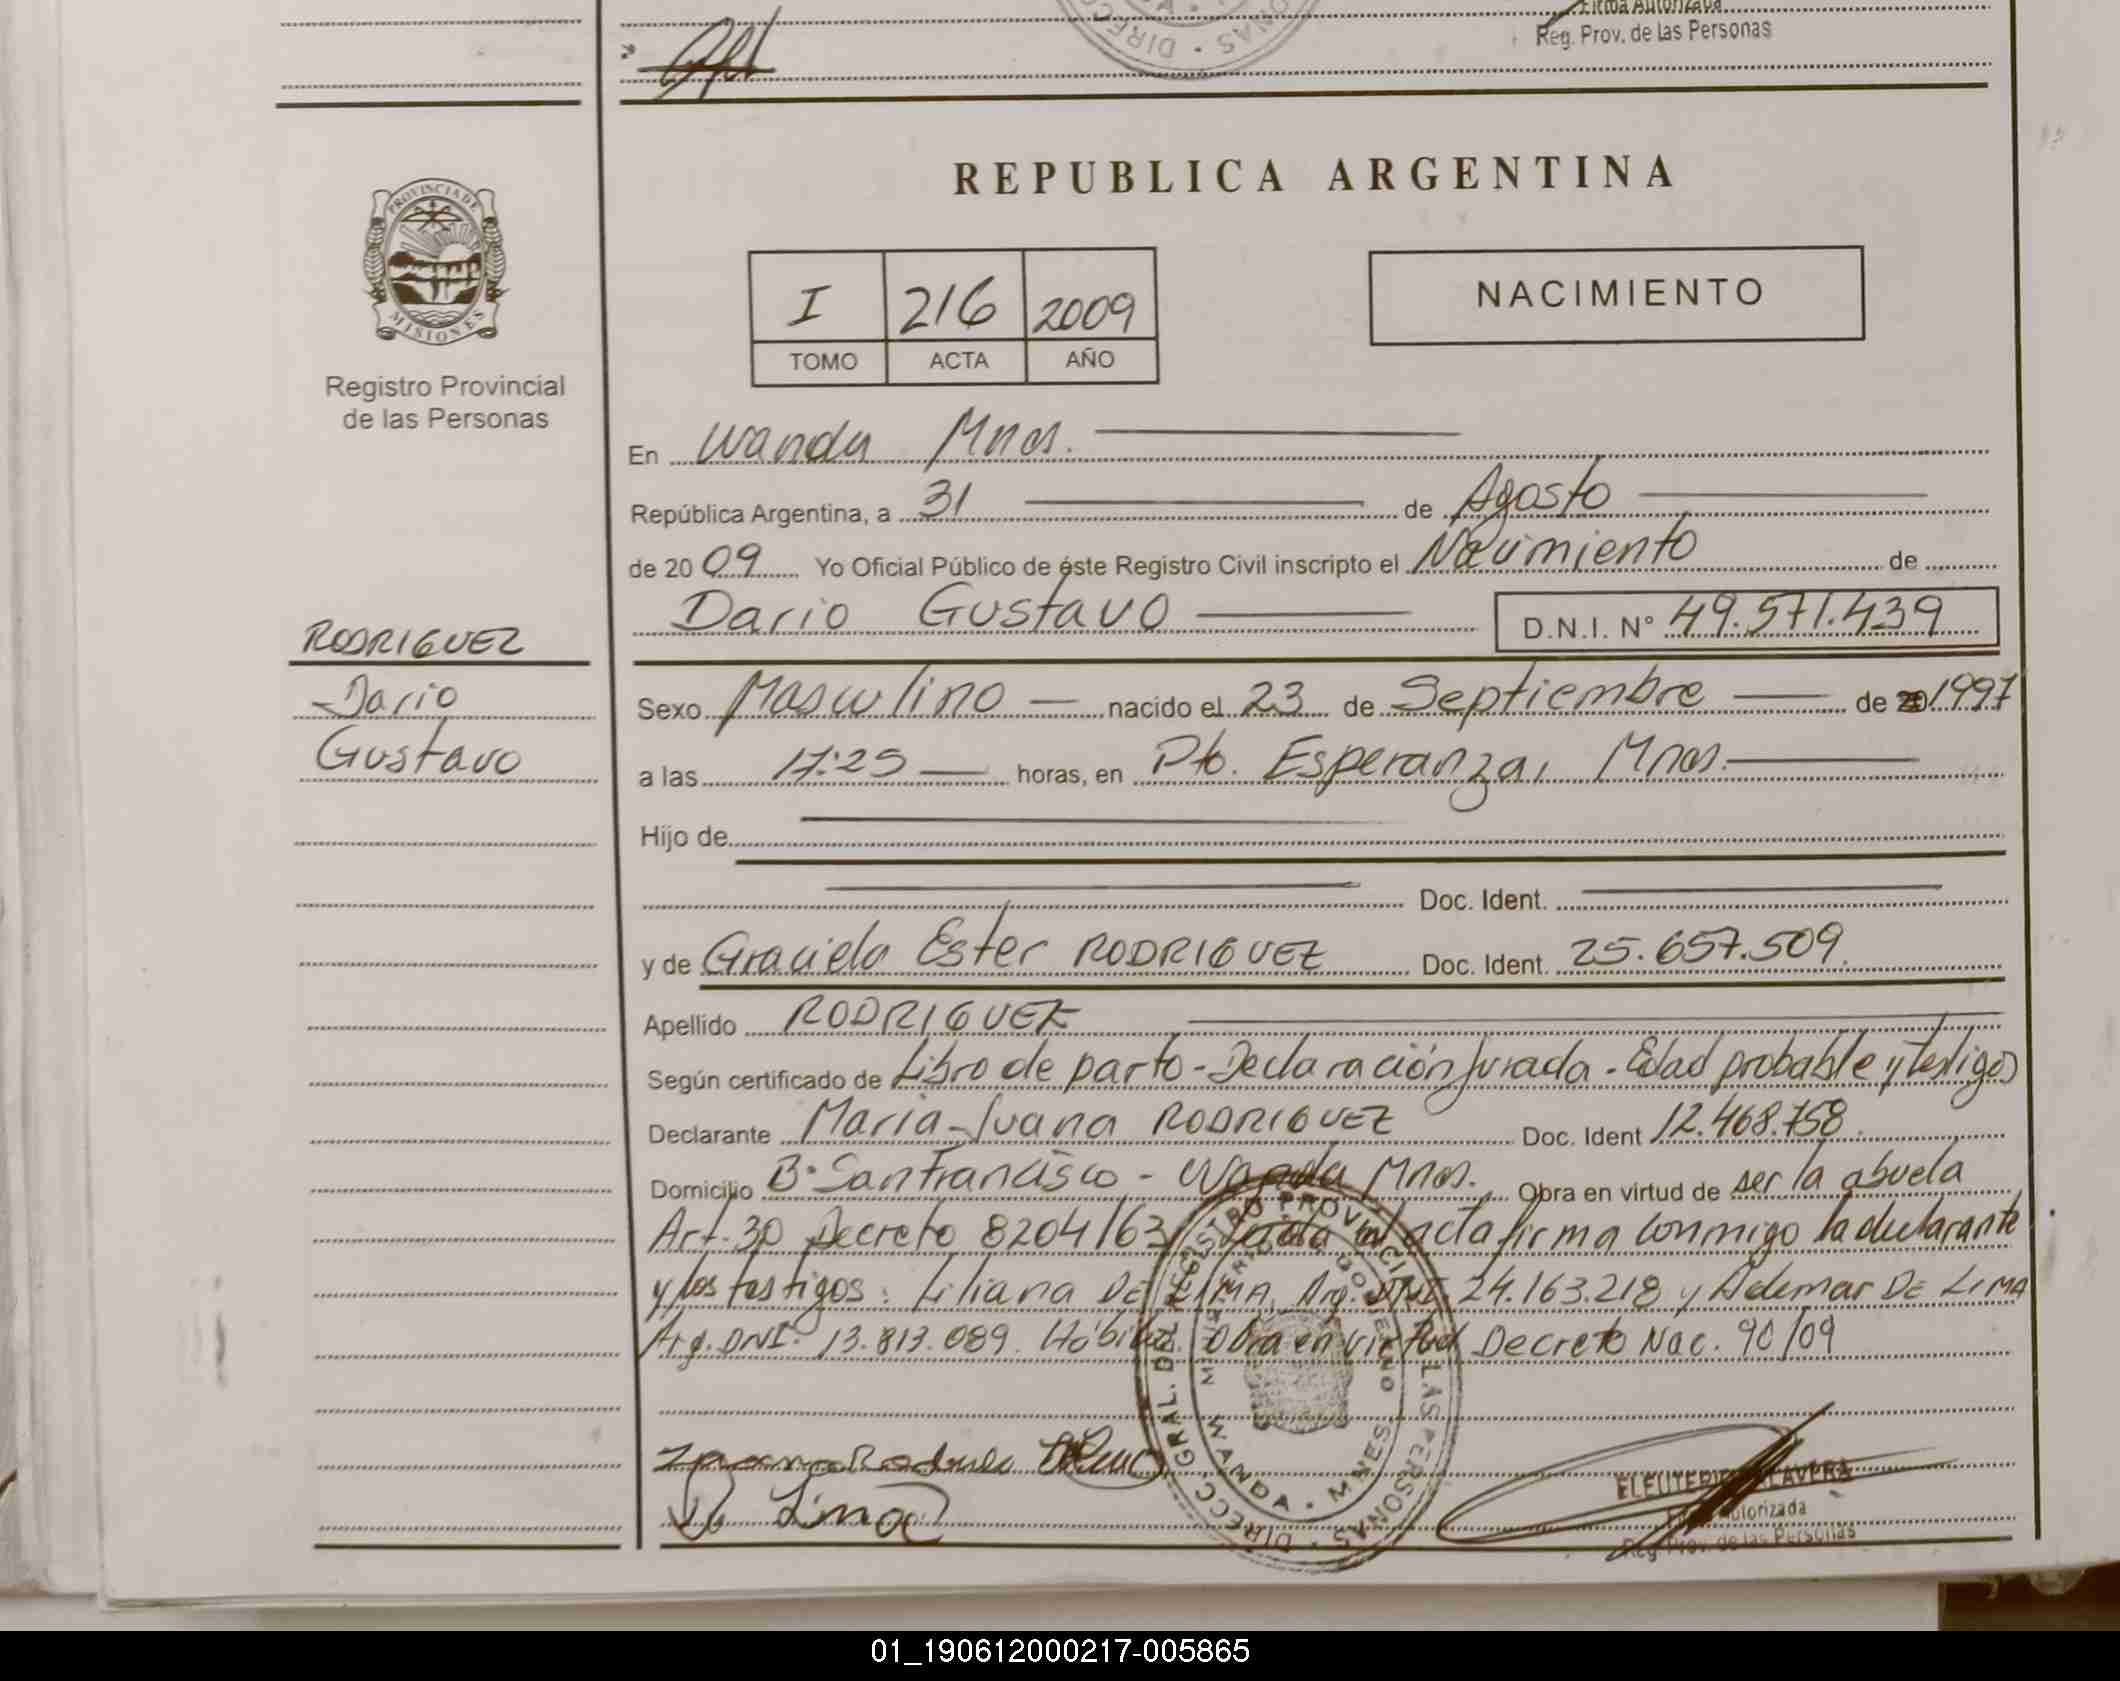 Firma Autorizada
Reg. Prov. de las Personas
DIRECC
ONAS
PROVINCIA DE
MISIONES
Registro Provincial
de las Personas
REPUBLICA ARGENTINA
I 216 2009
TOMO ACTA AÑO
NACIMIENTO
En Wanda Mnes.
República Argentina, a 31 de Agosto
de 20 09 Yo Oficial Público de éste Registro Civil inscripto el Nacimiento de
Dario Gustavo D.N.I. N° 49.571.439
RODRIGUEZ
Dario
Gustavo
Sexo Masculino nacido el 23 de Septiembre de 1997
a las 17:25 horas, en Pto. Esperanza, Mnes.
Hijo de
Doc. Ident.
y de Graciela Ester RODRIGUEZ Doc. Ident. 25.657.509.
Apellido RODRIGUEZ
Según certificado de Libro de parto - Declaración Jurada - Edad probable y testigos
Declarante Maria Juana RODRIGUEZ Doc. Ident 12.468.758.
Domicilio B° San Francisco - Wanda Mnes. Obra en virtud de ser la abuela
Art. 30 Decreto 8204/63 Leida mi acta firma conmigo la declarante
y los testigos: Liliana DE LIMA, Arg. DNI. 24.163.218 y Ademar DE LIMA
Arg. DNI. 13.813.089. Hábiles. Obra en virtud Decreto Nac. 90/09
DIRECC GRAL. DEL REGISTRO PROVINCIAL DE LAS PERSONAS
MINISTERIO DE GOBIERNO
WANDA - MNES
De Lima
ELEUTERIO TALAVERA
Firma Autorizada
Reg. Prov. de las Personas
01_190612000217-005865